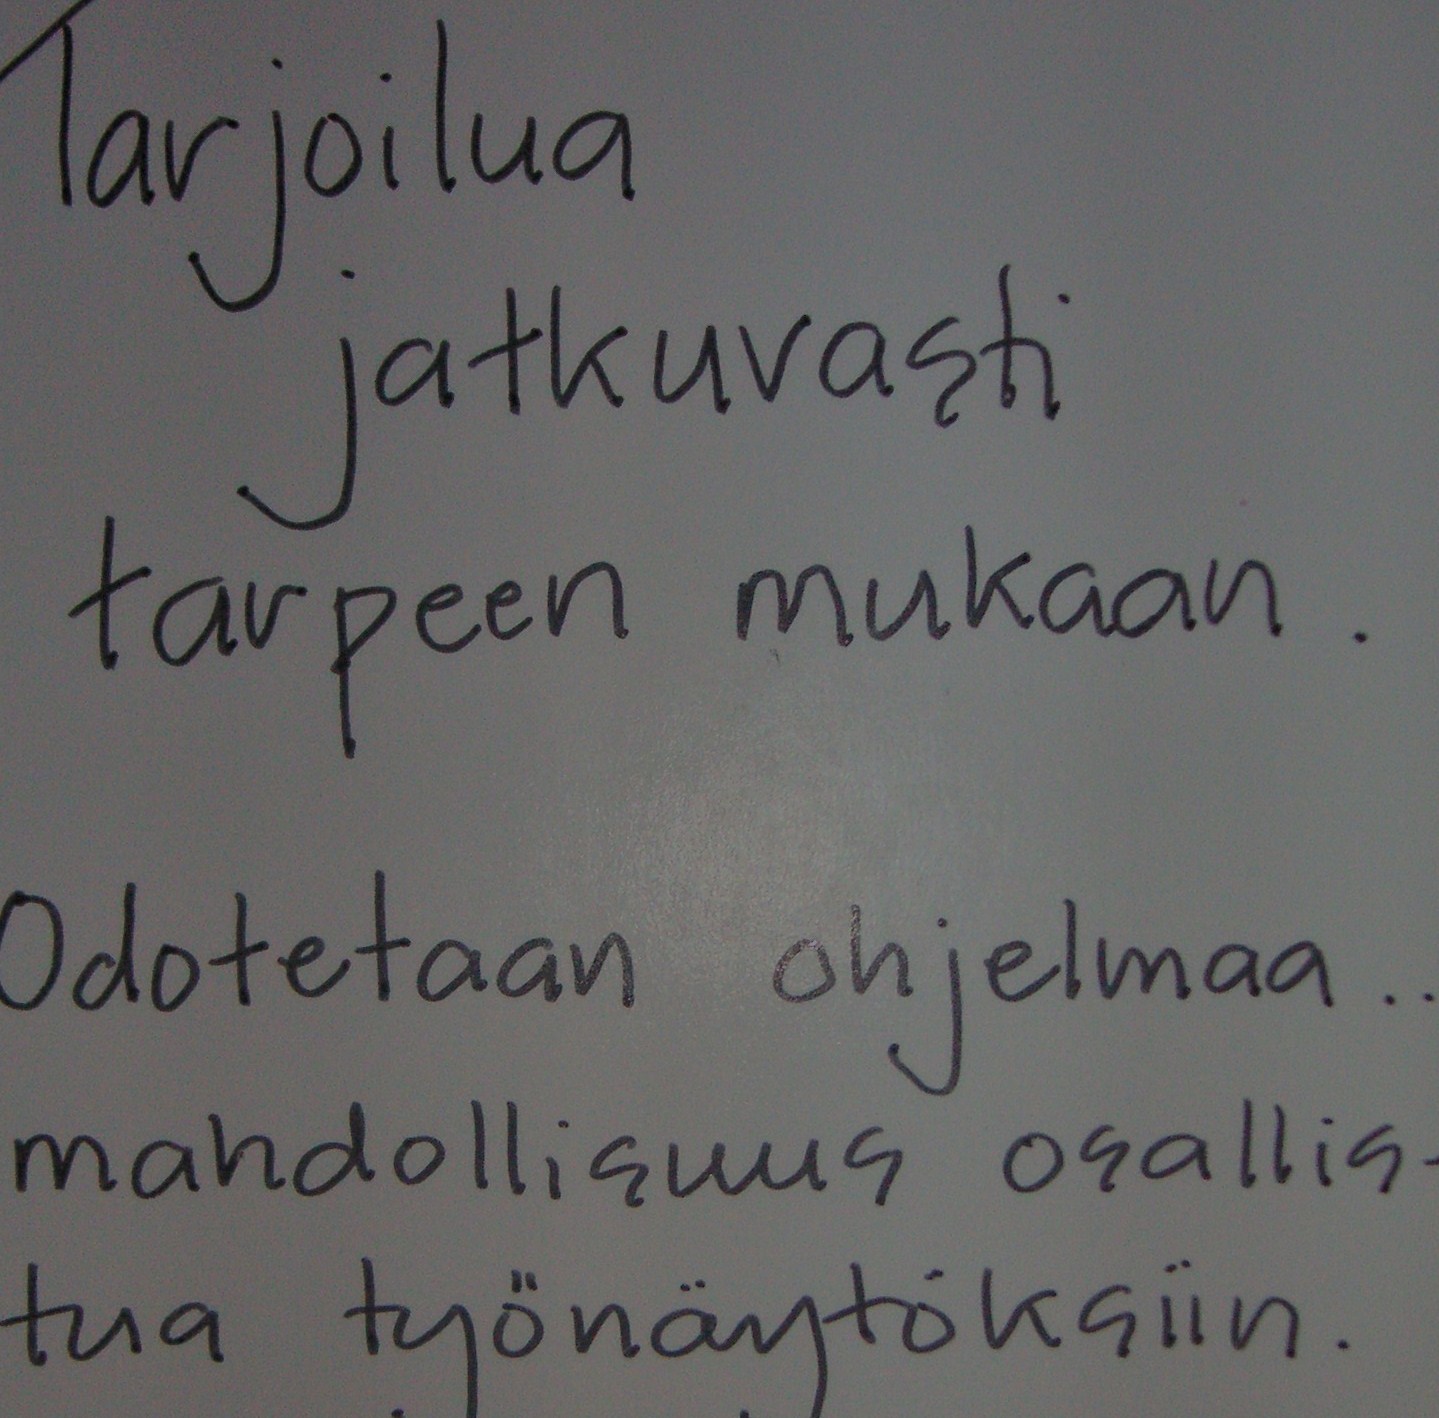 Tarjoilua
jatkuvasti
tarpeen mukaan.
Odotetaan ohjelmaa..
mahdollisuus osallis-
tua työnäytöksiin.